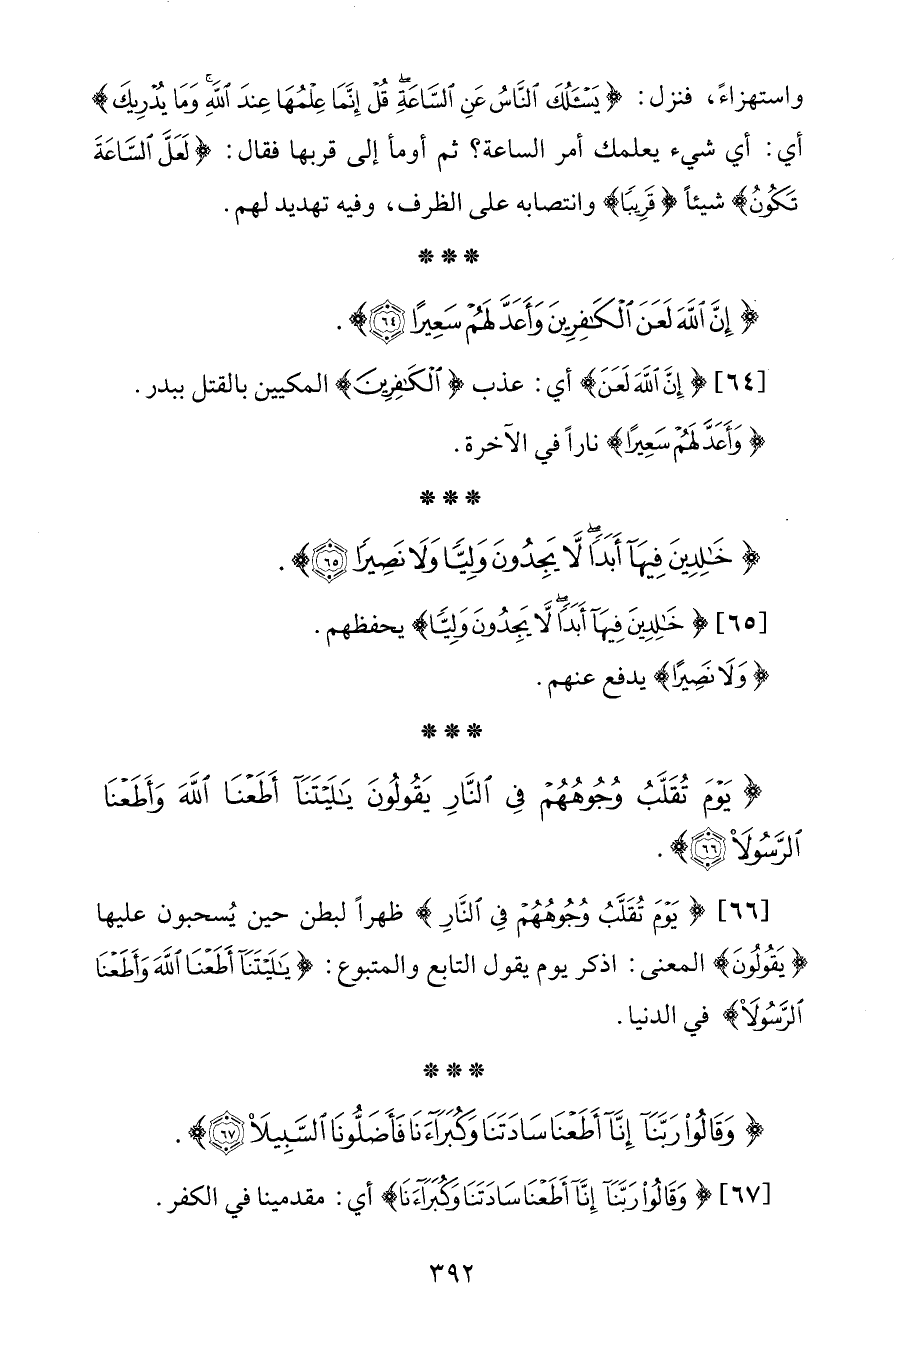 واستهزاءً، فنزل: ﴿يَسْـَٔلُكَ ٱلنَّاسُ عَنِ ٱلسَّاعَةِ ۖ قُلْ إِنَّمَا عِلْمُهَا عِندَ ٱللَّهِ ۚ وَمَا يُدْرِيكَ﴾
أي: أي شيء يعلمك أمر الساعة؟ ثم أومأ إلى قربها فقال: ﴿لَعَلَّ ٱلسَّاعَةَ
تَكُونُ﴾ شيئاً ﴿قَرِيبًا﴾ وانتصابه على الظرف، وفيه تهديد لهم.
* * *
﴿إِنَّ ٱللَّهَ لَعَنَ ٱلْكَـٰفِرِينَ وَأَعَدَّ لَهُمْ سَعِيرًا ٦٤﴾.
[٦٤] ﴿إِنَّ ٱللَّهَ لَعَنَ﴾ أي: عذب ﴿ٱلْكَـٰفِرِينَ﴾ المكيين بالقتل ببدر.
﴿وَأَعَدَّ لَهُمْ سَعِيرًا﴾ ناراً في الآخرة.
* * *
﴿خَـٰلِدِينَ فِيهَآ أَبَدًا ۖ لَّا يَجِدُونَ وَلِيًّا وَلَا نَصِيرًا ٦٥﴾.
[٦٥] ﴿خَـٰلِدِينَ فِيهَآ أَبَدًا ۖ لَّا يَجِدُونَ وَلِيًّا﴾ يحفظهم.
﴿وَلَا نَصِيرًا﴾ يدفع عنهم.
* * *
﴿يَوْمَ تُقَلَّبُ وُجُوهُهُمْ فِى ٱلنَّارِ يَقُولُونَ يَـٰلَيْتَنَآ أَطَعْنَا ٱللَّهَ وَأَطَعْنَا
ٱلرَّسُولَا۠ ٦٦﴾.
[٦٦] ﴿يَوْمَ تُقَلَّبُ وُجُوهُهُمْ فِى ٱلنَّارِ﴾ ظهراً لبطن حين يُسحبون عليها
﴿يَقُولُونَ﴾ المعنى: اذكر يوم يقول التابع والمتبوع: ﴿يَـٰلَيْتَنَآ أَطَعْنَا ٱللَّهَ وَأَطَعْنَا
ٱلرَّسُولَا۠﴾ في الدنيا.
* * *
﴿وَقَالُوا۟ رَبَّنَآ إِنَّآ أَطَعْنَا سَادَتَنَا وَكُبَرَآءَنَا فَأَضَلُّونَا ٱلسَّبِيلَا۠ ٦٧﴾.
[٦٧] ﴿وَقَالُوا۟ رَبَّنَآ إِنَّآ أَطَعْنَا سَادَتَنَا وَكُبَرَآءَنَا﴾ أي: مقدمينا في الكفر.
٣٩٢